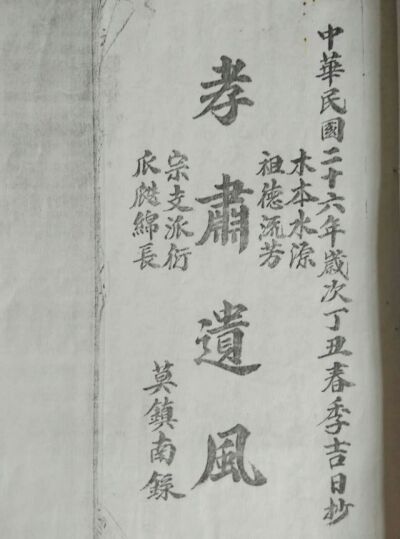 中華民國二十六年歲次丁丑春季吉日抄
木本水源
祖德流芳
孝肅遺風
宗支派衍
瓜瓞綿長
莫鎮南錄